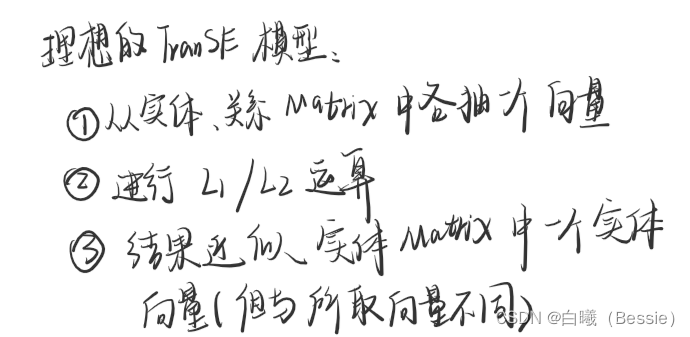 理想的TransE模型：
①从实体、关系Matrix中各抽一个向量
②进行L1/L2运算
③结果近似实体Matrix中一个实体
向量(但与所取向量不同)
CSDN @白曦（Bessie）